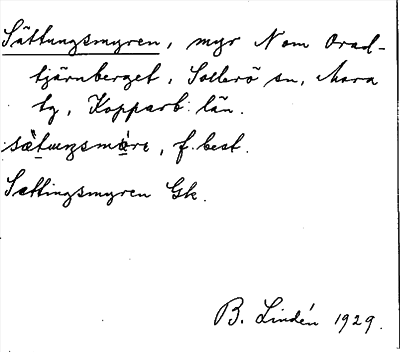 Sättungsmyren, myr N om Orad-
tjärnberget, Sollerö sn, Mora
tg, Kopparb. län.
f. best.
Sættingsmyren Gk.
B. Lindén 1929.